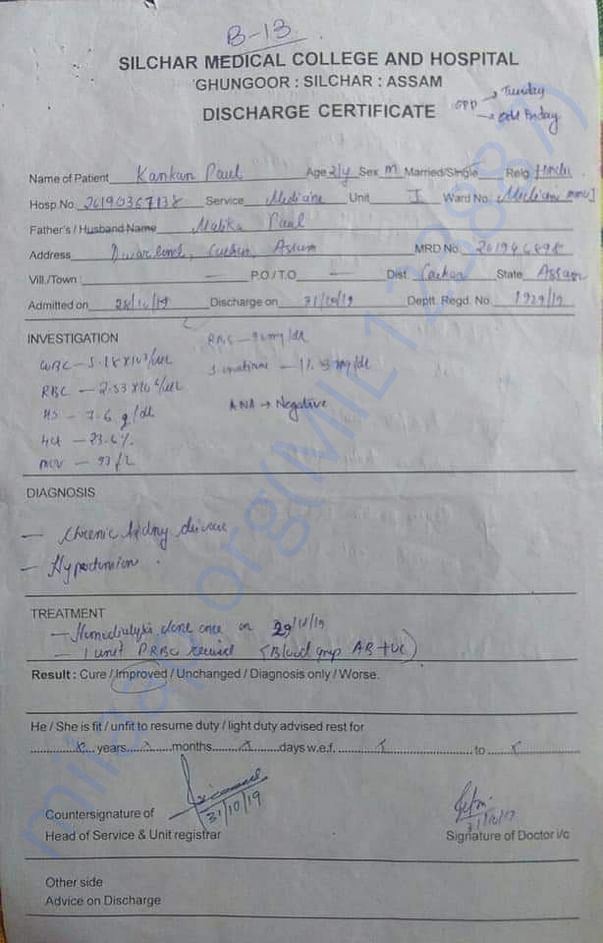 B-13
SILCHAR MEDICAL COLLEGE AND HOSPITAL
GHUNGOOR : SILCHAR : ASSAM
DISCHARGE CERTIFICATE OPD → Tuesday
→ Odd Friday
Name of Patient Kankan Paul Age 21y Sex M Married/Single Relg Hindu
Hosp.No 20190367138 Service Medicine Unit I Ward No. Medicine
Father's / Husband Name Malika Paul
Address Cachar, Assam MRD No.
Vill./Town : — P.O / T.O — Dist. Cachar State Assam
Admitted on Discharge on 31/10/19 Deptt. Regd. No. 1929/19
INVESTIGATION
WBC — 5.18 X 10³/uL
RBC — 2.53 X 10⁶/uL
ANA → Negative
Hb — 7.6 g/dl
Hct — 23.6%
MCV — 93 fL
DIAGNOSIS
— Chronic kidney disease
— Hypertension .
TREATMENT
— Hemodialysis done once on 29/10/19
— 1 unit PRBC received (Blood group AB +ve)
Result : Cure / Improved / Unchanged / Diagnosis only / Worse.
He / She is fit / unfit to resume duty / light duty advised rest for
years months days w.e.f. to
31/10/19
31/10/19
Countersignature of
Head of Service & Unit registrar
Signature of Doctor i/c
Other side
Advice on Discharge
milaap.org(MIL123887)